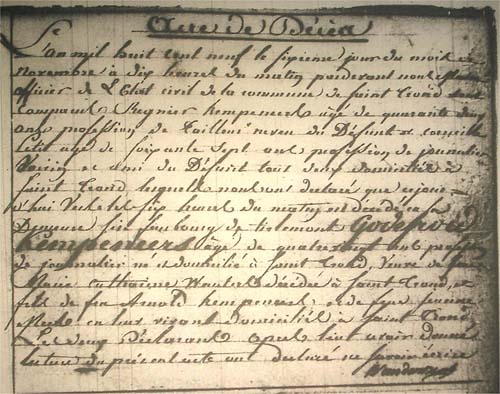 Acte de Décès
L'an mil huit cent neuf le sixieme jour du mois de
novembre a dix heures du matin pardevant nous
officier de L'Etat civil de la commune de Saint Trond sont
comparus Regnier Kempeneers âge de quarante deux
ans profession de Tailleur neveu du Défunt et
Petit âgé de soixante sept ans profession de journalier
Voisin et ami du Défunt tout deux domiciliés à
Saint Trond lesquels nous ont declaré que
d'hui Vers les six heures du matin est décédé en sa
Demeure sise faubourg de tirlemont Godefroid
Kempeneers âgé de quatrevingt ans profession
de journalier né et domicilié à Saint Trond, Veuve de
Marie Catherine Wauters décédée à Saint Trond, et
fils de feu Arnold Kempeneers, et de feue
en leur vivant domiciliés à Saint Trond
Les deux Déclarants après leur avoir donné
lecture du présent acte ont declaré ne savoir écrire